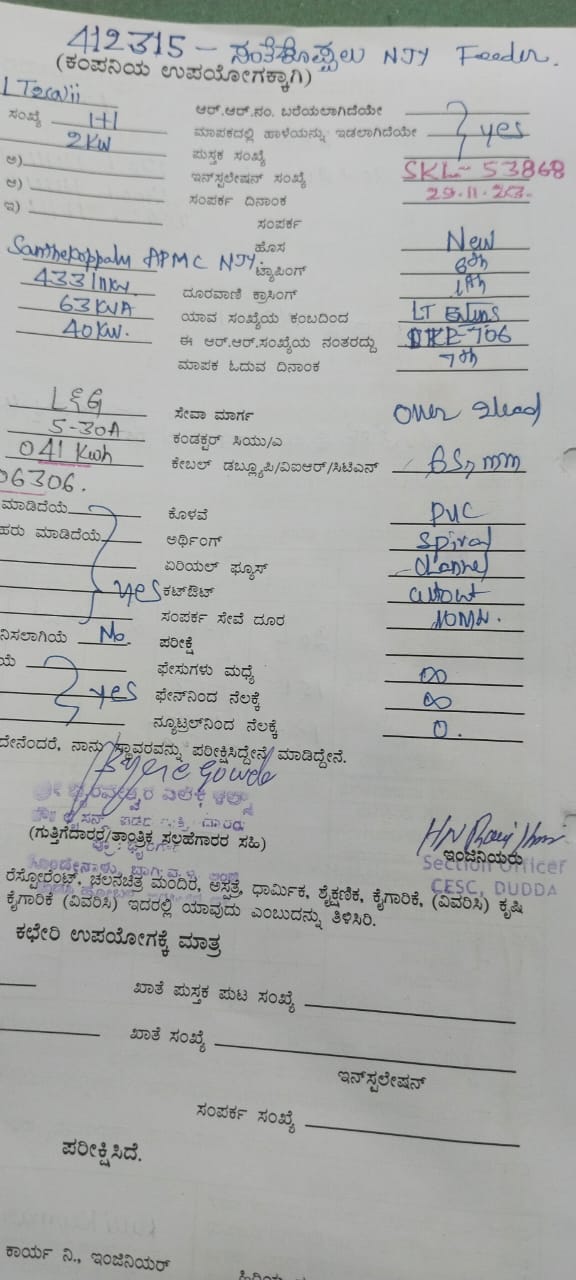 412315 – ಸಂತೆಕೊಪ್ಪಲು NJY Feeder.
(ಕಂಪನಿಯ ಉಪಯೋಗಕ್ಕಾಗಿ)
ಆರ್.ಆರ್.ನಂ. ಬರೆಯಲಾಗಿದೆಯೇ
ಸಂಖ್ಯೆ 1+1 ಮಾಪಕದಲ್ಲಿ ಹಾಳೆಯನ್ನು ಇಡಲಾಗಿದೆಯೇ yes
2KW ಪುಸ್ತಕ ಸಂಖ್ಯೆ
ಅ) ಇನ್‌ಸ್ಟಲೇಷನ್ ಸಂಖ್ಯೆ SKL-53868
ಆ) ಸಂಪರ್ಕ ದಿನಾಂಕ
ಇ) ಸಂಪರ್ಕ
ಹೊಸ New
Santhekoppalu APMC NJY. ಟ್ಯಾಪಿಂಗ್ 6th
ದೂರವಾಣಿ ಕ್ರಾಸಿಂಗ್
63KVA ಯಾವ ಸಂಖ್ಯೆಯ ಕಂಬದಿಂದ LT
40KW. ಈ ಆರ್.ಆರ್.ಸಂಖ್ಯೆಯ ನಂತರದ್ದು
ಮಾಪಕ ಓದುವ ದಿನಾಂಕ 7th
L&G ಸೇವಾ ಮಾರ್ಗ Over Head
5-30A ಕಂಡಕ್ಟರ್ ಸಿಯು/ಎ
041 Kwh ಕೇಬಲ್ ಡಬ್ಲ್ಯೂಪಿ/ವಿಐಆರ್/ಸಿಟಿಎನ್ mm
06306.
ಮಾಡಿದೆಯೆ ಕೊಳವೆ PVC
ಹರು ಮಾಡಿದೆಯೆ ಅರ್ಥಿಂಗ್ Spiral
ಏರಿಯಲ್ ಫ್ಯೂಸ್ channel
yes ಕಟ್‌ಔಟ್ cutout
ಸಂಪರ್ಕ ಸೇವೆ ದೂರ
ನಿಸಲಾಗಿಯೆ No. ಪರೀಕ್ಷೆ
ಯೆ ಫೇಸುಗಳು ಮಧ್ಯೆ ∞
yes ಫೇಸ್‌ನಿಂದ ನೆಲಕ್ಕೆ ∞
ನ್ಯೂಟ್ರಲ್‌ನಿಂದ ನೆಲಕ್ಕೆ 0.
ದೇನೆಂದರೆ, ನಾನು ಸ್ಥಾವರವನ್ನು ಪರೀಕ್ಷಿಸಿದ್ದೇನೆ ಮಾಡಿದ್ದೇನೆ.
(ಗುತ್ತಿಗೆದಾರರ/ತಾಂತ್ರಿಕ ಸಲಹೆಗಾರರ ಸಹಿ) ಇಂಜಿನಿಯರು
Section Officer
CESC, DUDDA
ರೆಸ್ಟೋರೆಂಟ್, ಚಲನಚಿತ್ರ ಮಂದಿರ, ಆಸ್ಪತ್ರೆ, ಧಾರ್ಮಿಕ, ಶೈಕ್ಷಣಿಕ, ಕೈಗಾರಿಕೆ, (ವಿವರಿಸಿ) ಕೃಷಿ
ಕೈಗಾರಿಕೆ (ವಿವರಿಸಿ) ಇದರಲ್ಲಿ ಯಾವುದು ಎಂಬುದನ್ನು ತಿಳಿಸಿರಿ.
ಕಛೇರಿ ಉಪಯೋಗಕ್ಕೆ ಮಾತ್ರ
ಖಾತೆ ಪುಸ್ತಕ ಪುಟ ಸಂಖ್ಯೆ
ಖಾತೆ ಸಂಖ್ಯೆ
ಇನ್‌ಸ್ಟಲೇಷನ್
ಸಂಪರ್ಕ ಸಂಖ್ಯೆ
ಪರೀಕ್ಷಿಸಿದೆ.
ಕಾರ್ಯ ನಿ., ಇಂಜಿನಿಯರ್